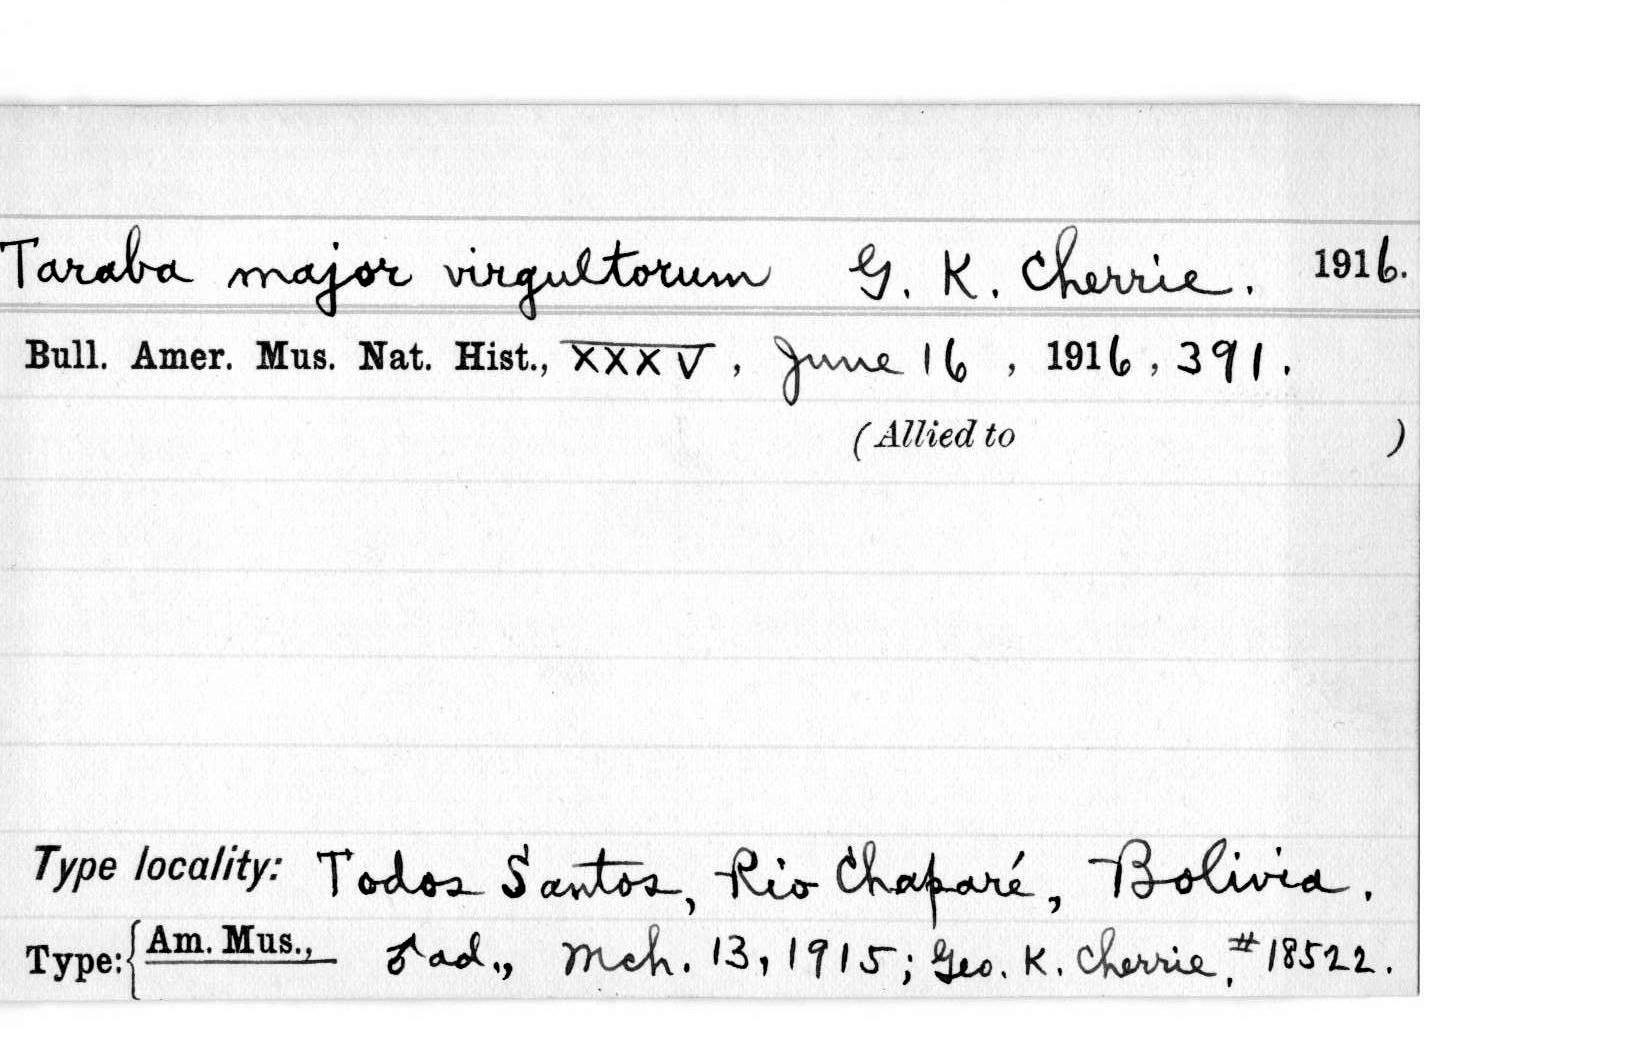 Taraba major virgultorum G. K. Cherrie. 1916.
Bull. Amer. Mus. Nat. Hist., XXXV, June 16, 1916, 391.
(Allied to )
Type locality: Todos Santos, Rio Chaparé, Bolivia.
Type: { Am. Mus., ♂ ad., Mch. 13, 1915; Geo. K. Cherrie, #18522.